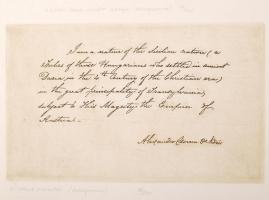 I am a native of the Siculian nation, (a
tribe of those Hungarians who settled in ancient
Dacia in the 4th Century of the Christian era)
in the great principality of Transylvania,
subject to His Majesty the Emperor of
Austria.—
Alexander Csoma de Kőrös